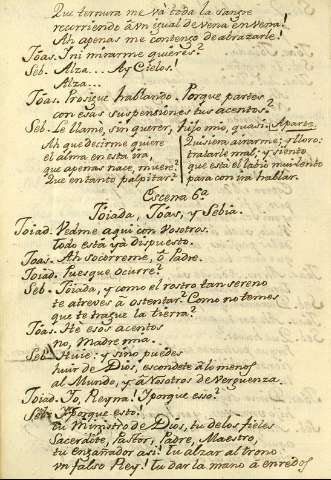 Que ternura me và toda la sangre
recurriendo â vn igual de vena en vena!
Ah apenas me contengo de abrazarle!
Tôas. I ni mirarme quieres?
Seb. Alza... Ay Cielos!
Alza...
Tôas. Prosigue hablando. Porque partes
con esas suspensiones tus acentos?
Seb. Le llamè, sin querer, hijo mio, quasi. Aparte
Ah que decirme quiere
el alma en esta ira,
que apenas nace, muere?
Que en tanto palpitar?
Quisiera airarme; y lloro:
tratarle mal; y siento
que està el labio mui lento
para con ira hablar.
Escena 6ª
Toiada, Tôas, y Sebia.
Toiad. Vedme aqui con vosotros.
Todo està yà dispuesto.
Tôas. Ah socorreme, ô Padre.
Toiad. Pues que ocurre?
Seb. Toiada, y como el rostro tan sereno
te atreves â ostentar? Como no temes
que te trague la tierra?
Tôas. Hè esos acentos
no, Madre mia.
Seb. Huie: y si no puedes
huir de Dios, escondete â lo menos
al Mundo, y â Nosotros de verguenza.
Toiad. Io, Reyna! I porque eso?
Seb. I porque esto!
Tu Ministro de Dios, tu de los fieles
Sacerdote, Pastor, Padre, Maestro,
tu engañador asi! tu alzar al trono
vn falso Rey! tu dar la mano â enredos